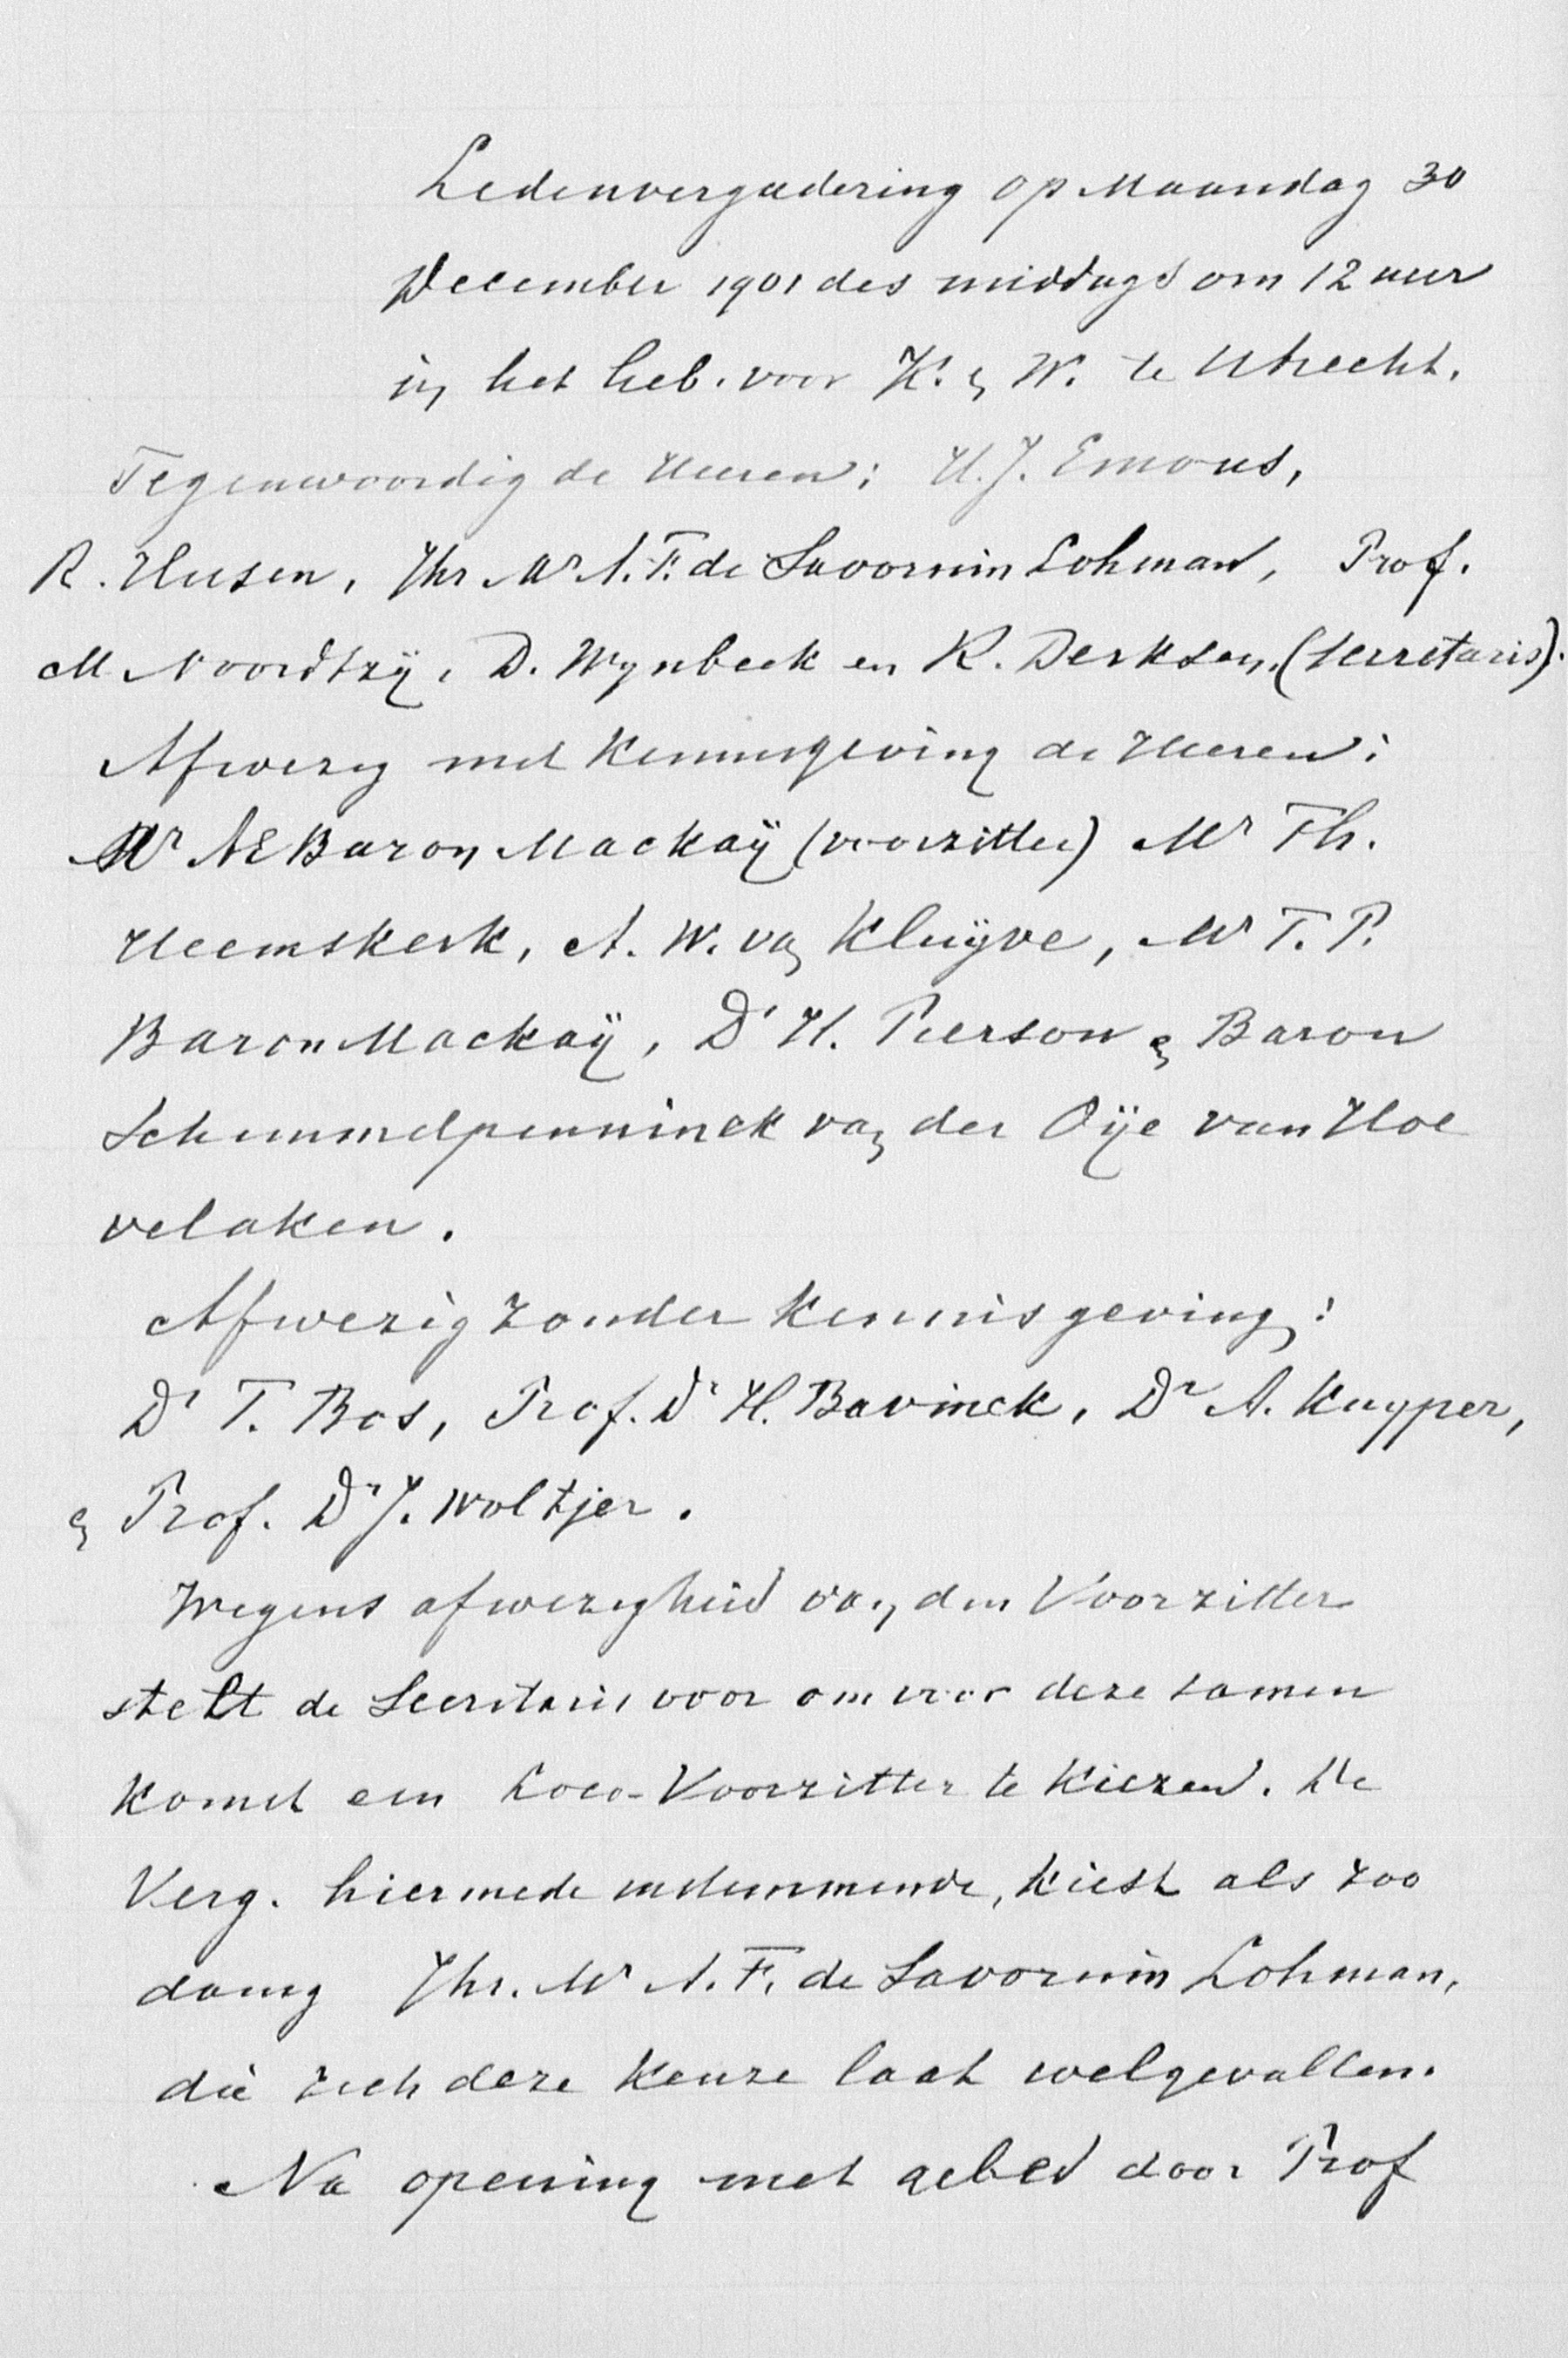 Ledenvergadering op Maandag 30
December 1901 des middags om 12 uur
in het Geb. voor K. en W. te Utrecht.
Tegenwoordig de Heeren: H.J. Emous,
R. Husen, Jhr Mr A.F. de Savornin Lohman, Prof.
M. Noordtzij, D. Wynbeek en R. Derksen, (Secretaris).
Afwezig met kennisgeving de Heeren:
Mr AE Baron Mackaÿ (voorzitter) Mr Th.
Heemskerk, A. W. van Kluijve, Mr T. P.
Baron Mackaÿ, Dr H. Pierson en Baron
Schimmelpenninck van der Oije van Hoe
velaken.
Afwezig zonder kennisgeving:
Dr T. Bos, Prof. Dr H. Bavinck, Dr A. Kuyper,
en Prof. Dr J. Woltjer.
Wegens afwezigheid van den Voorzitter
stelt de Secretaris voor om voor deze samen
komst een Loco-Voorzitter te kiezen. De
Verg. hiermede instemmende, kiest als zoo
danig Jhr. Mr A. F. de Savornin Lohman,
die zich deze keuze laat welgevallen.
Na opening met gebed door Prof